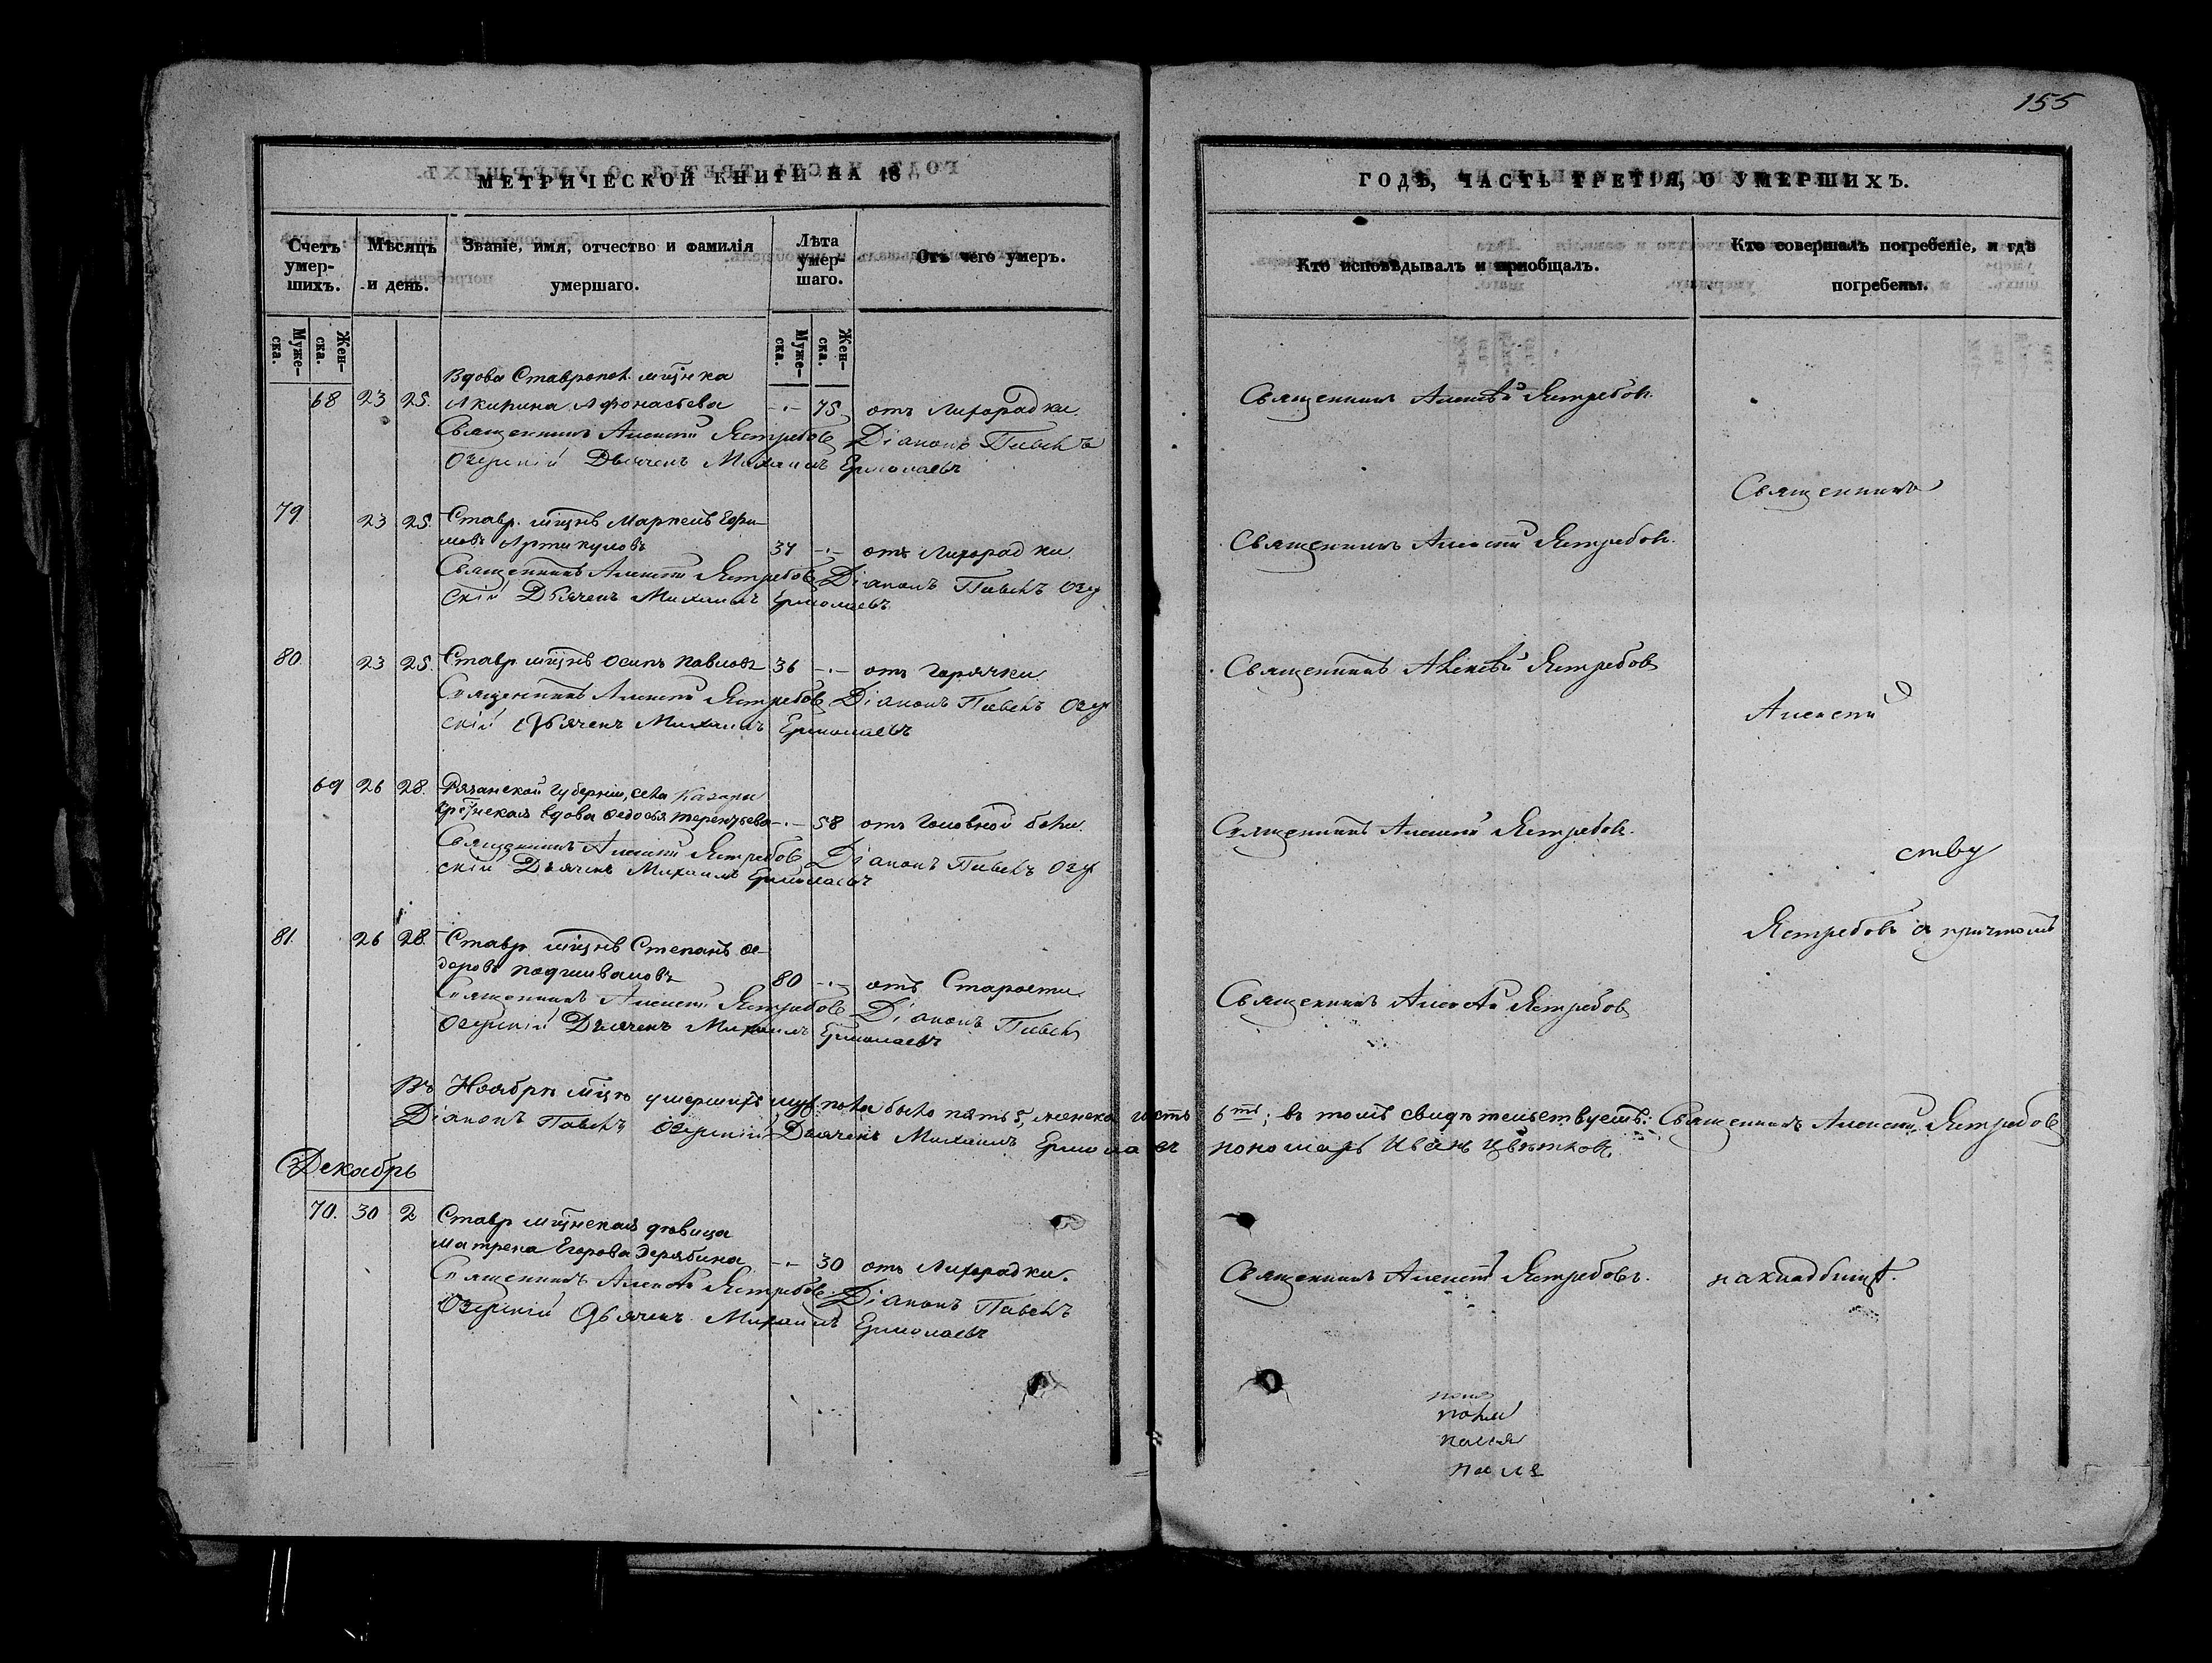 155
МЕТРИЧЕСКОЙ КНИГИ НА 18
ГОДЪ, ЧАСТЬ ТРЕТІЯ, О УМЕРШИХЪ.
Счетъ умер-шихъ.
Мѣсяцъ и день.
Званіе, имя, отчество и фамилія умершаго.
Лѣта умер-шаго.
Отъ чего умеръ.
Кто исповѣдывалъ и приобщалъ.
Кто совершалъ погребеніе, и гдѣ погребены.
Муже-ска.
Жен-ска.
Муже-ска.
Жен-ска.
Вдова Ставропол. мщнка
68 23 25. Акирина Афонасьева -.- 75 отъ Лихорадки.
Священникъ Алексѣй Ястребовъ
Священникъ Алексѣй Ястребовъ Діаконъ Павелъ
Озерскій Дьячекъ Михаилъ Ермолаевъ
Священникъ
79. 23 25. Ставр. мщнъ Маркелъ Ефи-
мовъ Артикуловъ 37 -.- отъ Лихорадки.
Священникъ Алексѣй Ястребовъ.
Священникъ Алексѣй Ястребовъ Діаконъ Павелъ Озер
скій Дьячекъ Михаилъ Ермолаевъ
80. 23 25. Ставр мщнъ Осипъ Павловъ 36 -.- отъ горячки.
Священникъ Алексѣй Ястребовъ
Священникъ Алексѣй Ястребовъ Діаконъ Павелъ Озер
скій Дьячекъ Михаилъ Ермолаевъ
Алексѣй
69 26 28. Рязанской губерніи, села
вдова Федосья Терентьева -.- 58 отъ головной боли.
Священникъ Алексѣй Ястребовъ.
Священникъ Алексѣй Ястребовъ Діаконъ Павелъ Озер
скій Дьячекъ Михаилъ Ермолаевъ
ству
81. 26 28. Ставр. мщнъ Степанъ Фе-
доровъ Подшиваловъ 80 -.- отъ Старости.
Ястребовъ съ причтомъ
Священникъ Алексѣй Ястребовъ
Священникъ Алексѣй Ястребовъ Діаконъ Павелъ
Озерскій Дьячекъ Михаилъ Ермолаевъ
Въ Ноябрѣ мцѣ умершихъ муж. пола было пять 5, женска шесть 6ть; въ томъ свидѣтельствуетъ: Священникъ Алексѣй Ястребовъ
Діаконъ Павелъ Озерскій Дьячекъ Михаилъ Ермолаевъ пономарь Иванъ Цвѣтковъ.
Декабрь
70. 30 2 Ставр мщнская дѣвица
Матрена Егорова Дерябина -.- 30 отъ Лихорадки.
Священникъ Алексѣй Ястребовъ.
на кладбищѣ.
Священникъ Алексѣй Ястребовъ Діаконъ Павелъ
Озерскій Дьячекъ Михаилъ Ермолаевъ